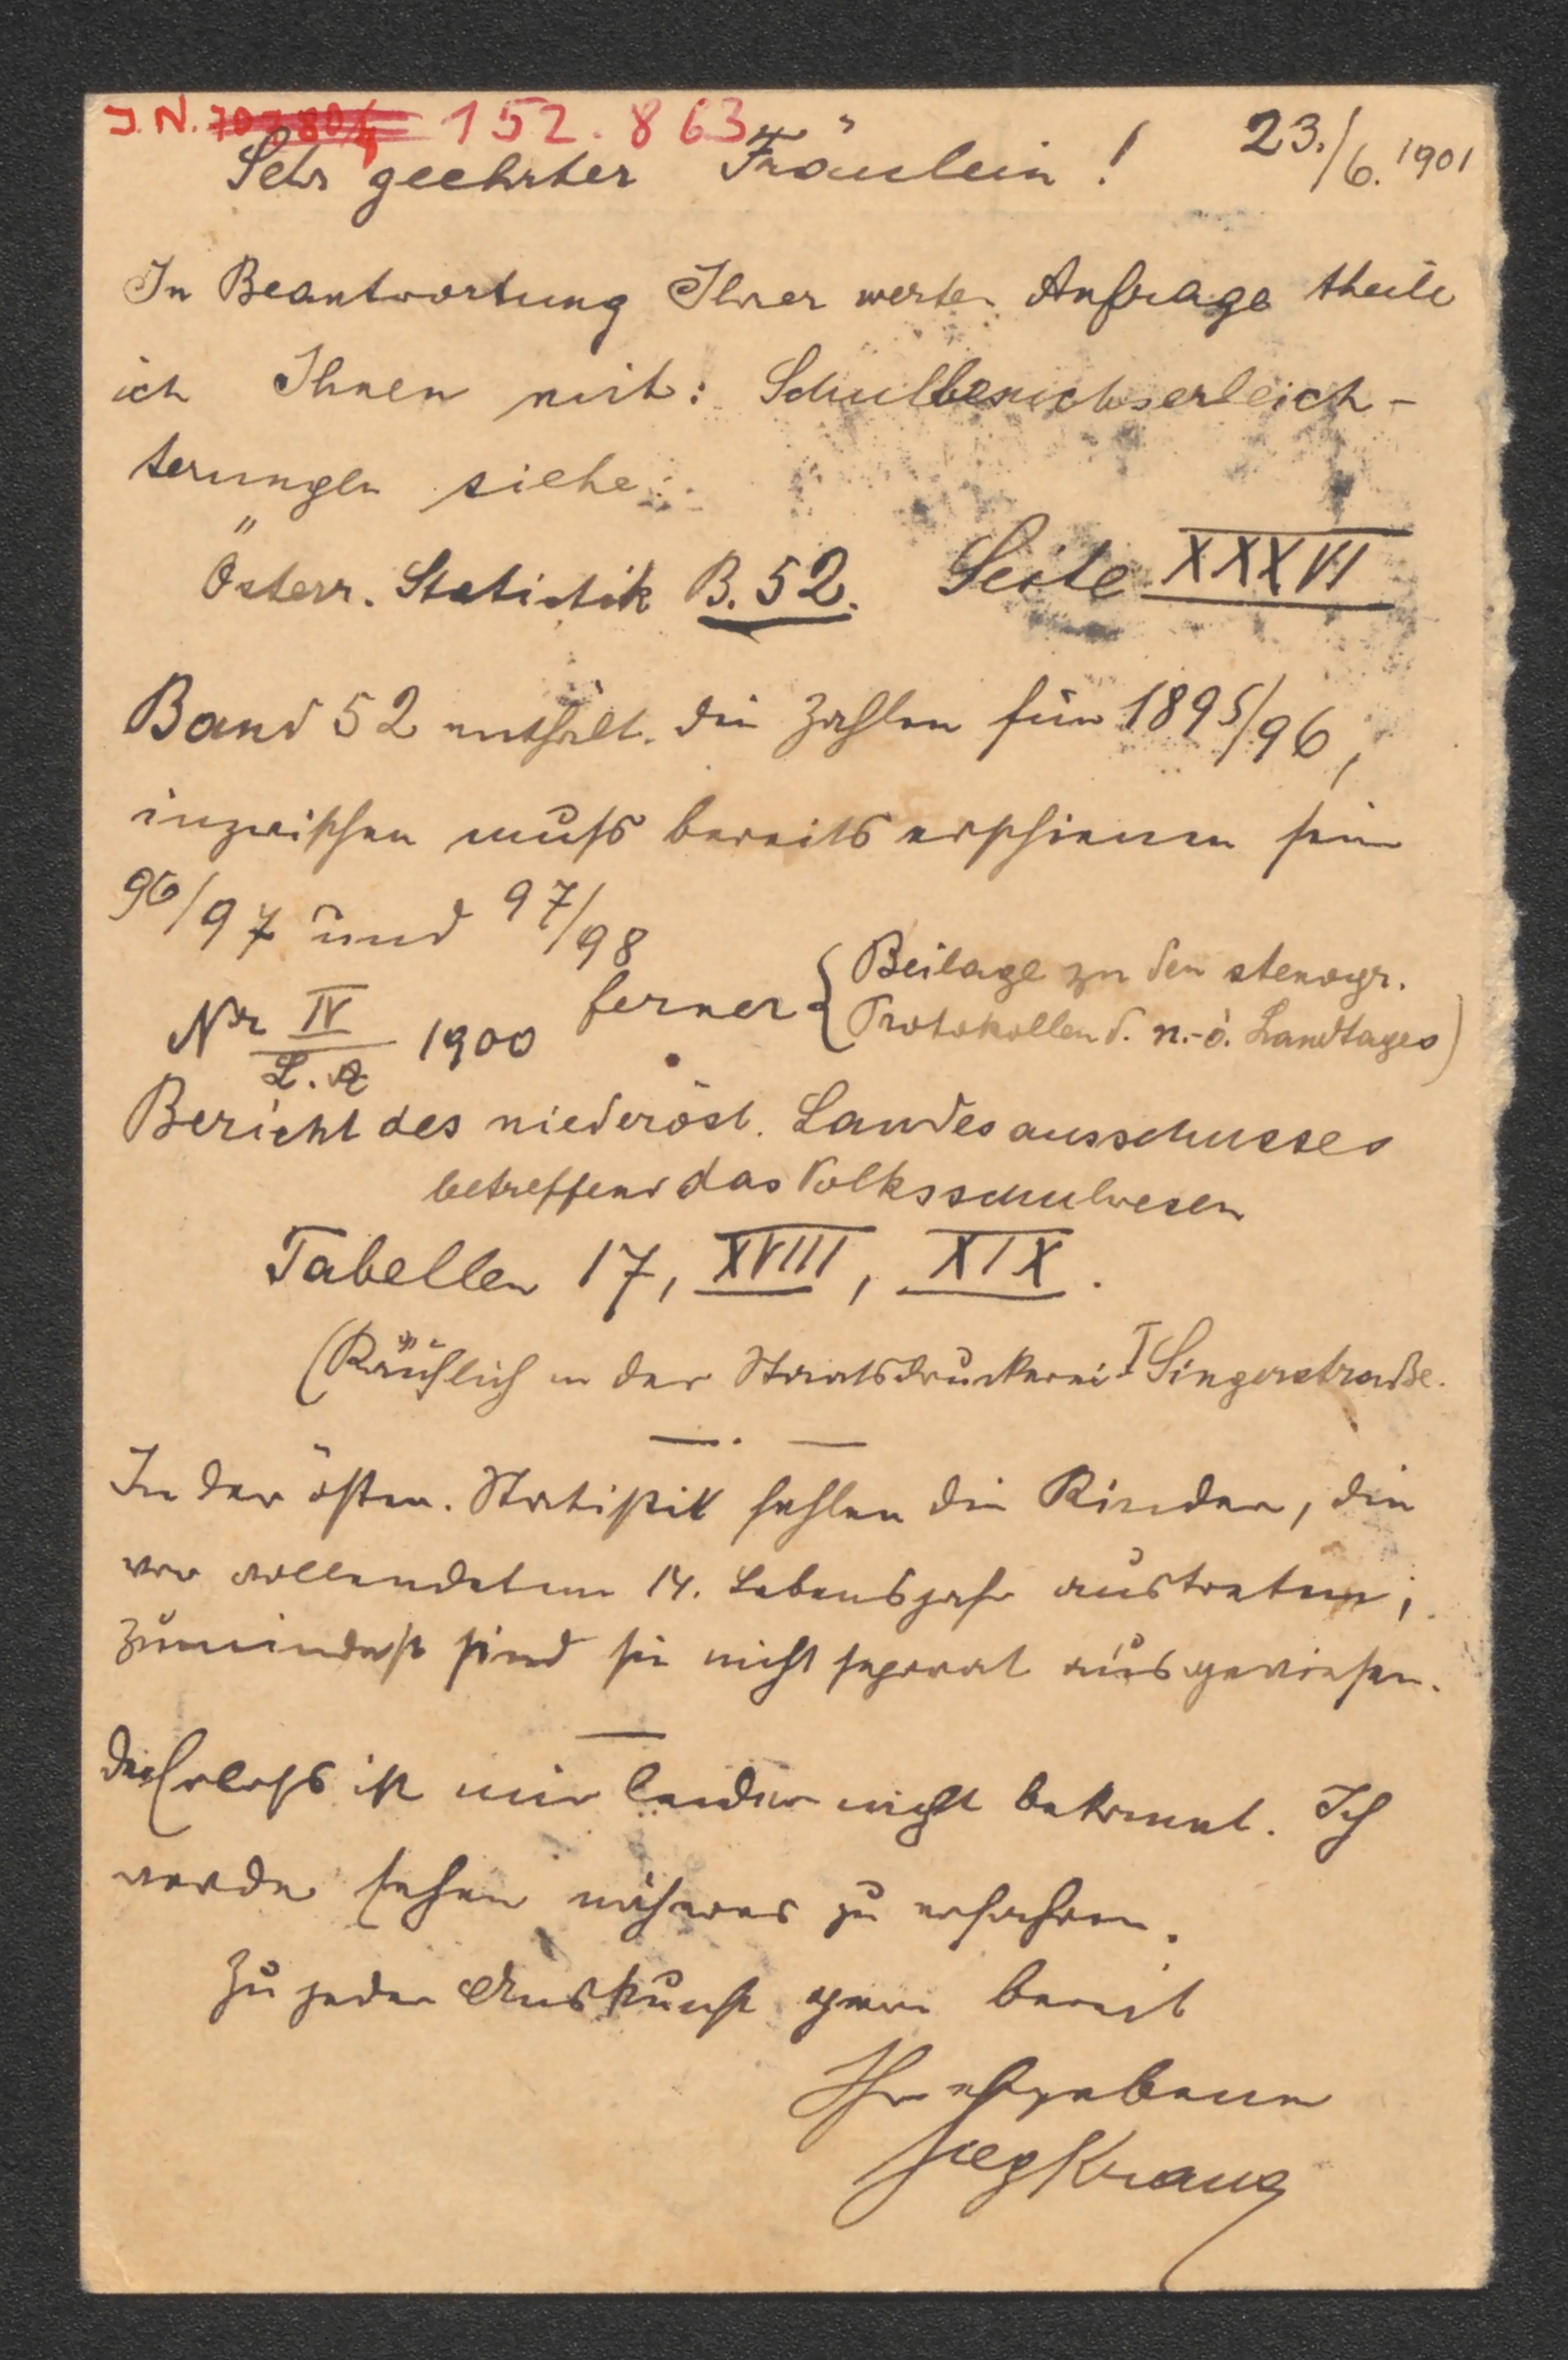 J.N. 152.863
23./6. 1901
Sehr geehrter Fräulein!
In Beantwortung Ihrer werten Anfrage theile
ich Ihnen mit: Schulbesuchserleich-
terungen siehe:
Österr. Statistik B. 52. Seite XXXVI
Band 52 enthält die Zahlen für 1895/96,
inzwischen muß bereits erschienen sein
96/97 und 97/98
ferner { Beilage zu den stenogr.
Protokollen d. n.-ö. Landtages)
Nr IV/L.A. 1900
Bericht des niederöst. Landesausschusses
betreffend das Volksschulwesen
Tabellen 17, XVIII, XIX.
(Käuflich in der Staatsdruckerei I Singerstraße.
In der österr. Statistik fehlen die Kinder, die
vor vollendetem 14. Lebensjahr austreten;
zumindest sind sie nicht separat ausgewiesen.
Der Erlaß ist mir leider nicht bekannt. Ich
werde sehen näheres zu erfahren.
Zu jeder Auskunft gern bereit
Ihr ergebener
Sieg Kraus